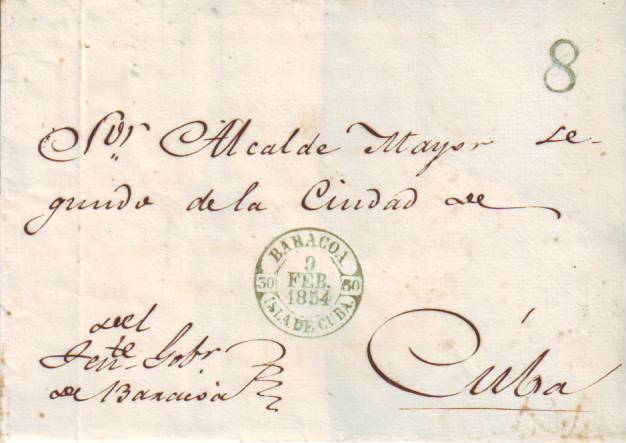 8
Sor. Alcalde Mayor Se-
gundo de la Ciudad de
BARACOA
30 9 30
FEB.
1854
ISLA DE CUBA.
del
Tente Gobr
de Baracoa
Cúba